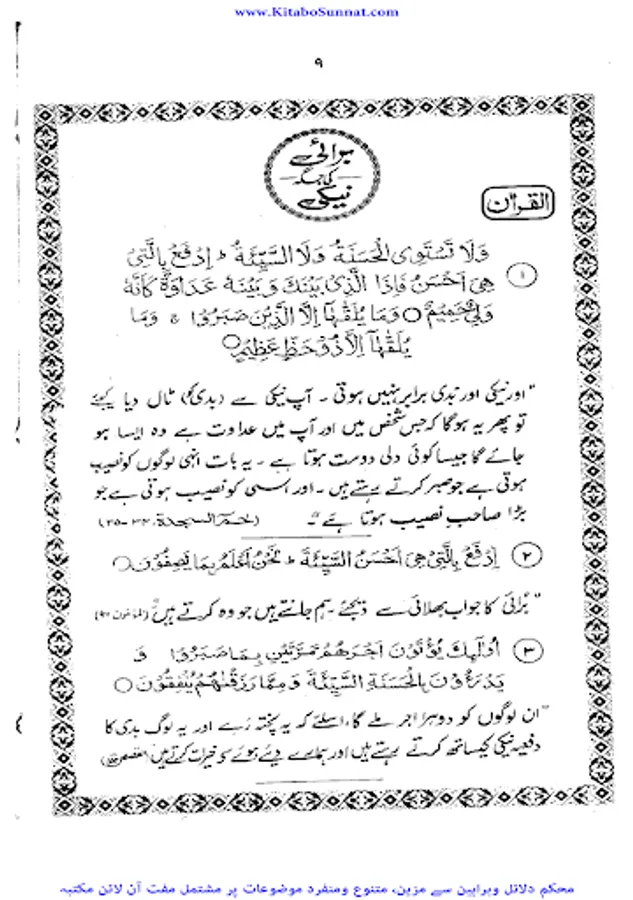 www.KitaboSunnat.com
۹
برائی
کی جگہ
نیکی
القرآن
وَلَا تَسْتَوِی الْحَسَنَةُ وَلَا السَّیِّئَةُ ط اِدْفَعْ بِالَّتِیْ
۱ هِیَ اَحْسَنُ فَاِذَا الَّذِیْ بَیْنَكَ وَبَیْنَهٗ عَدَاوَةٌ كَاَنَّهٗ
وَلِیٌّ حَمِیْمٌ ○ وَمَا یُلَقّٰهَا اِلَّا الَّذِیْنَ صَبَرُوْا ۚ وَمَا
یُلَقّٰهَا اِلَّا ذُوْ حَظٍّ عَظِیْمٍ ○
"اور نیکی اور بدی برابر نہیں ہوتی ۔ آپ نیکی سے (بدی کو) ٹال دیا کیجئے
تو پھر یہ ہوگا کہ جس شخص میں اور آپ میں عداوت ہے وہ ایسا ہو
جائے گا جیسا کوئی دلی دوست ہوتا ہے ۔ یہ بات انہی لوگوں کو نصیب
ہوتی ہے جو صبر کرتے رہتے ہیں ۔ اور اسی کو نصیب ہوتی ہے جو
بڑا صاحب نصیب ہوتا ہے"۔ (حٰمٓ السجدة، ۳۴-۳۵)
۲ اِدْفَعْ بِالَّتِیْ هِیَ اَحْسَنُ السَّیِّئَةَ ط نَحْنُ اَعْلَمُ بِمَا یَصِفُوْنَ ○
"بُرائی کا جواب بھلائی سے دیجئے ہم جانتے ہیں جو وہ کرتے ہیں"
۳ اُولٰٓئِكَ یُؤْتَوْنَ اَجْرَهُمْ مَّرَّتَیْنِ بِمَا صَبَرُوْا وَ
یَدْرَءُوْنَ بِالْحَسَنَةِ السَّیِّئَةَ وَمِمَّا رَزَقْنٰهُمْ یُنْفِقُوْنَ ○
"ان لوگوں کو دوہرا اجر ملے گا، اسلئے کہ یہ پختہ رہے اور یہ لوگ بدی کا
دفعیہ نیکی کیساتھ کرتے رہتے ہیں اور ہمارے دیئے ہوئے کو خیرات کرتے ہیں
محکم دلائل وبراہین سے مزین، متنوع ومنفرد موضوعات پر مشتمل مفت آن لائن مکتبہ